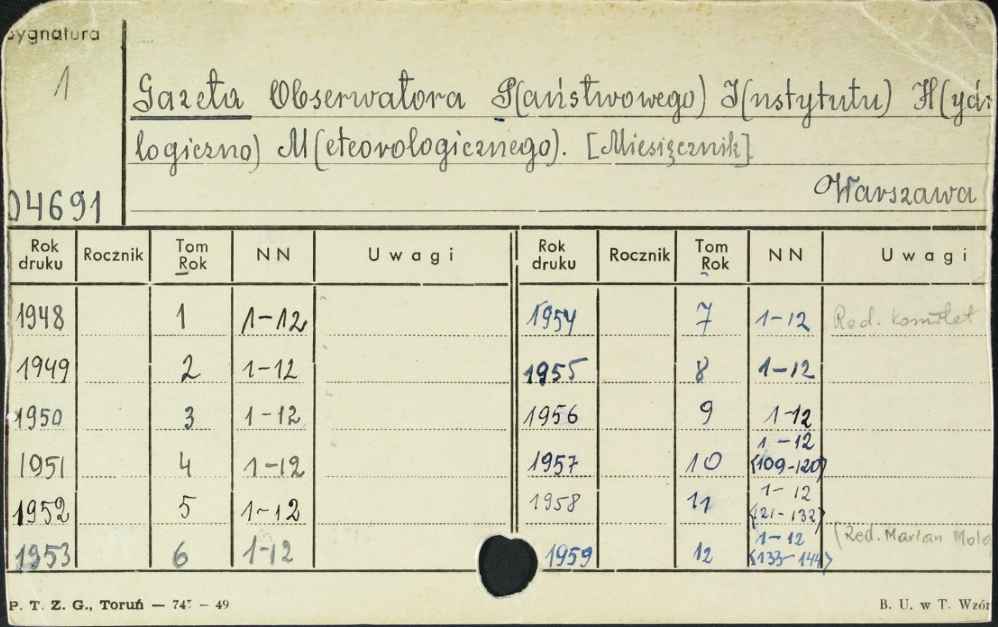 Sygnatura
1
Gazeta Obserwatora P(aństwowego) I(nstytutu) H(ydro
logiczno) M(eteorologicznego). [Miesięcznik]
Warszawa
04691
Rok druku Rocznik Tom Rok NN Uwagi Rok druku Rocznik Tom Rok NN Uwagi
1948 1 1-12 1954 7 1-12 Red. Komitet
1949 2 1-12 1955 8 1-12
1950 3 1-12 1956 9 1-12
1951 4 1-12 1957 10 1-12 (109-120)
1952 5 1-12 1958 11 1-12 (121-132)
1953 6 1-12 1959 12 1-12 (133-144) (Red. Marian Molo
P. T. Z. G., Toruń — 747 — 49 B. U. w T. Wzór